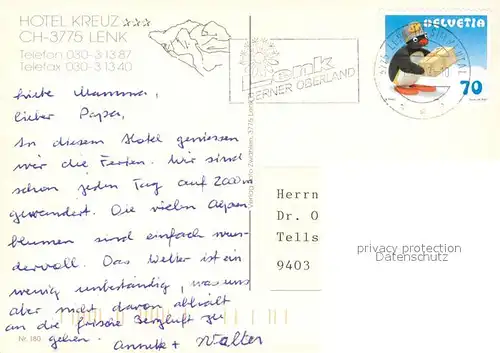 HOTEL KREUZ ***
CH-3775 LENK
Telefon 030-3 13 87
Telefax 030-3 13 40
Liebe Mamma,
lieber Papa,
In diesem Hotel geniessen
wir die Ferien. Wir sind
schon jeden Tag auf 2000 m
gewandert. Die vielen Alpen
blumen sind einfach wun-
dervoll. Das Wetter ist ein
wenig unbeständig, was uns
aber nicht davon abhält
an die frische Bergluft zu
gehen.
Walter
Nr. 180
3775 Lenk
lenk
BERNER OBERLAND
HELVETIA
70
Herrn
Dr. O
Tells
9403
privacy protection
Datenschutz